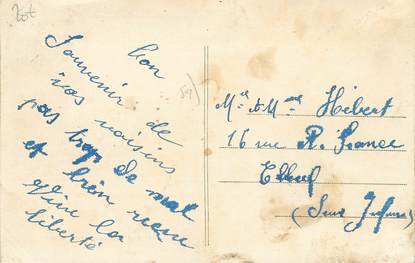 bon
Souvenir de
vos voisins
pas trop de mal
et bien
vive la
liberté
Mr & Mme Hébert
16 rue R. France
Elbeuf
(Seine Infre)